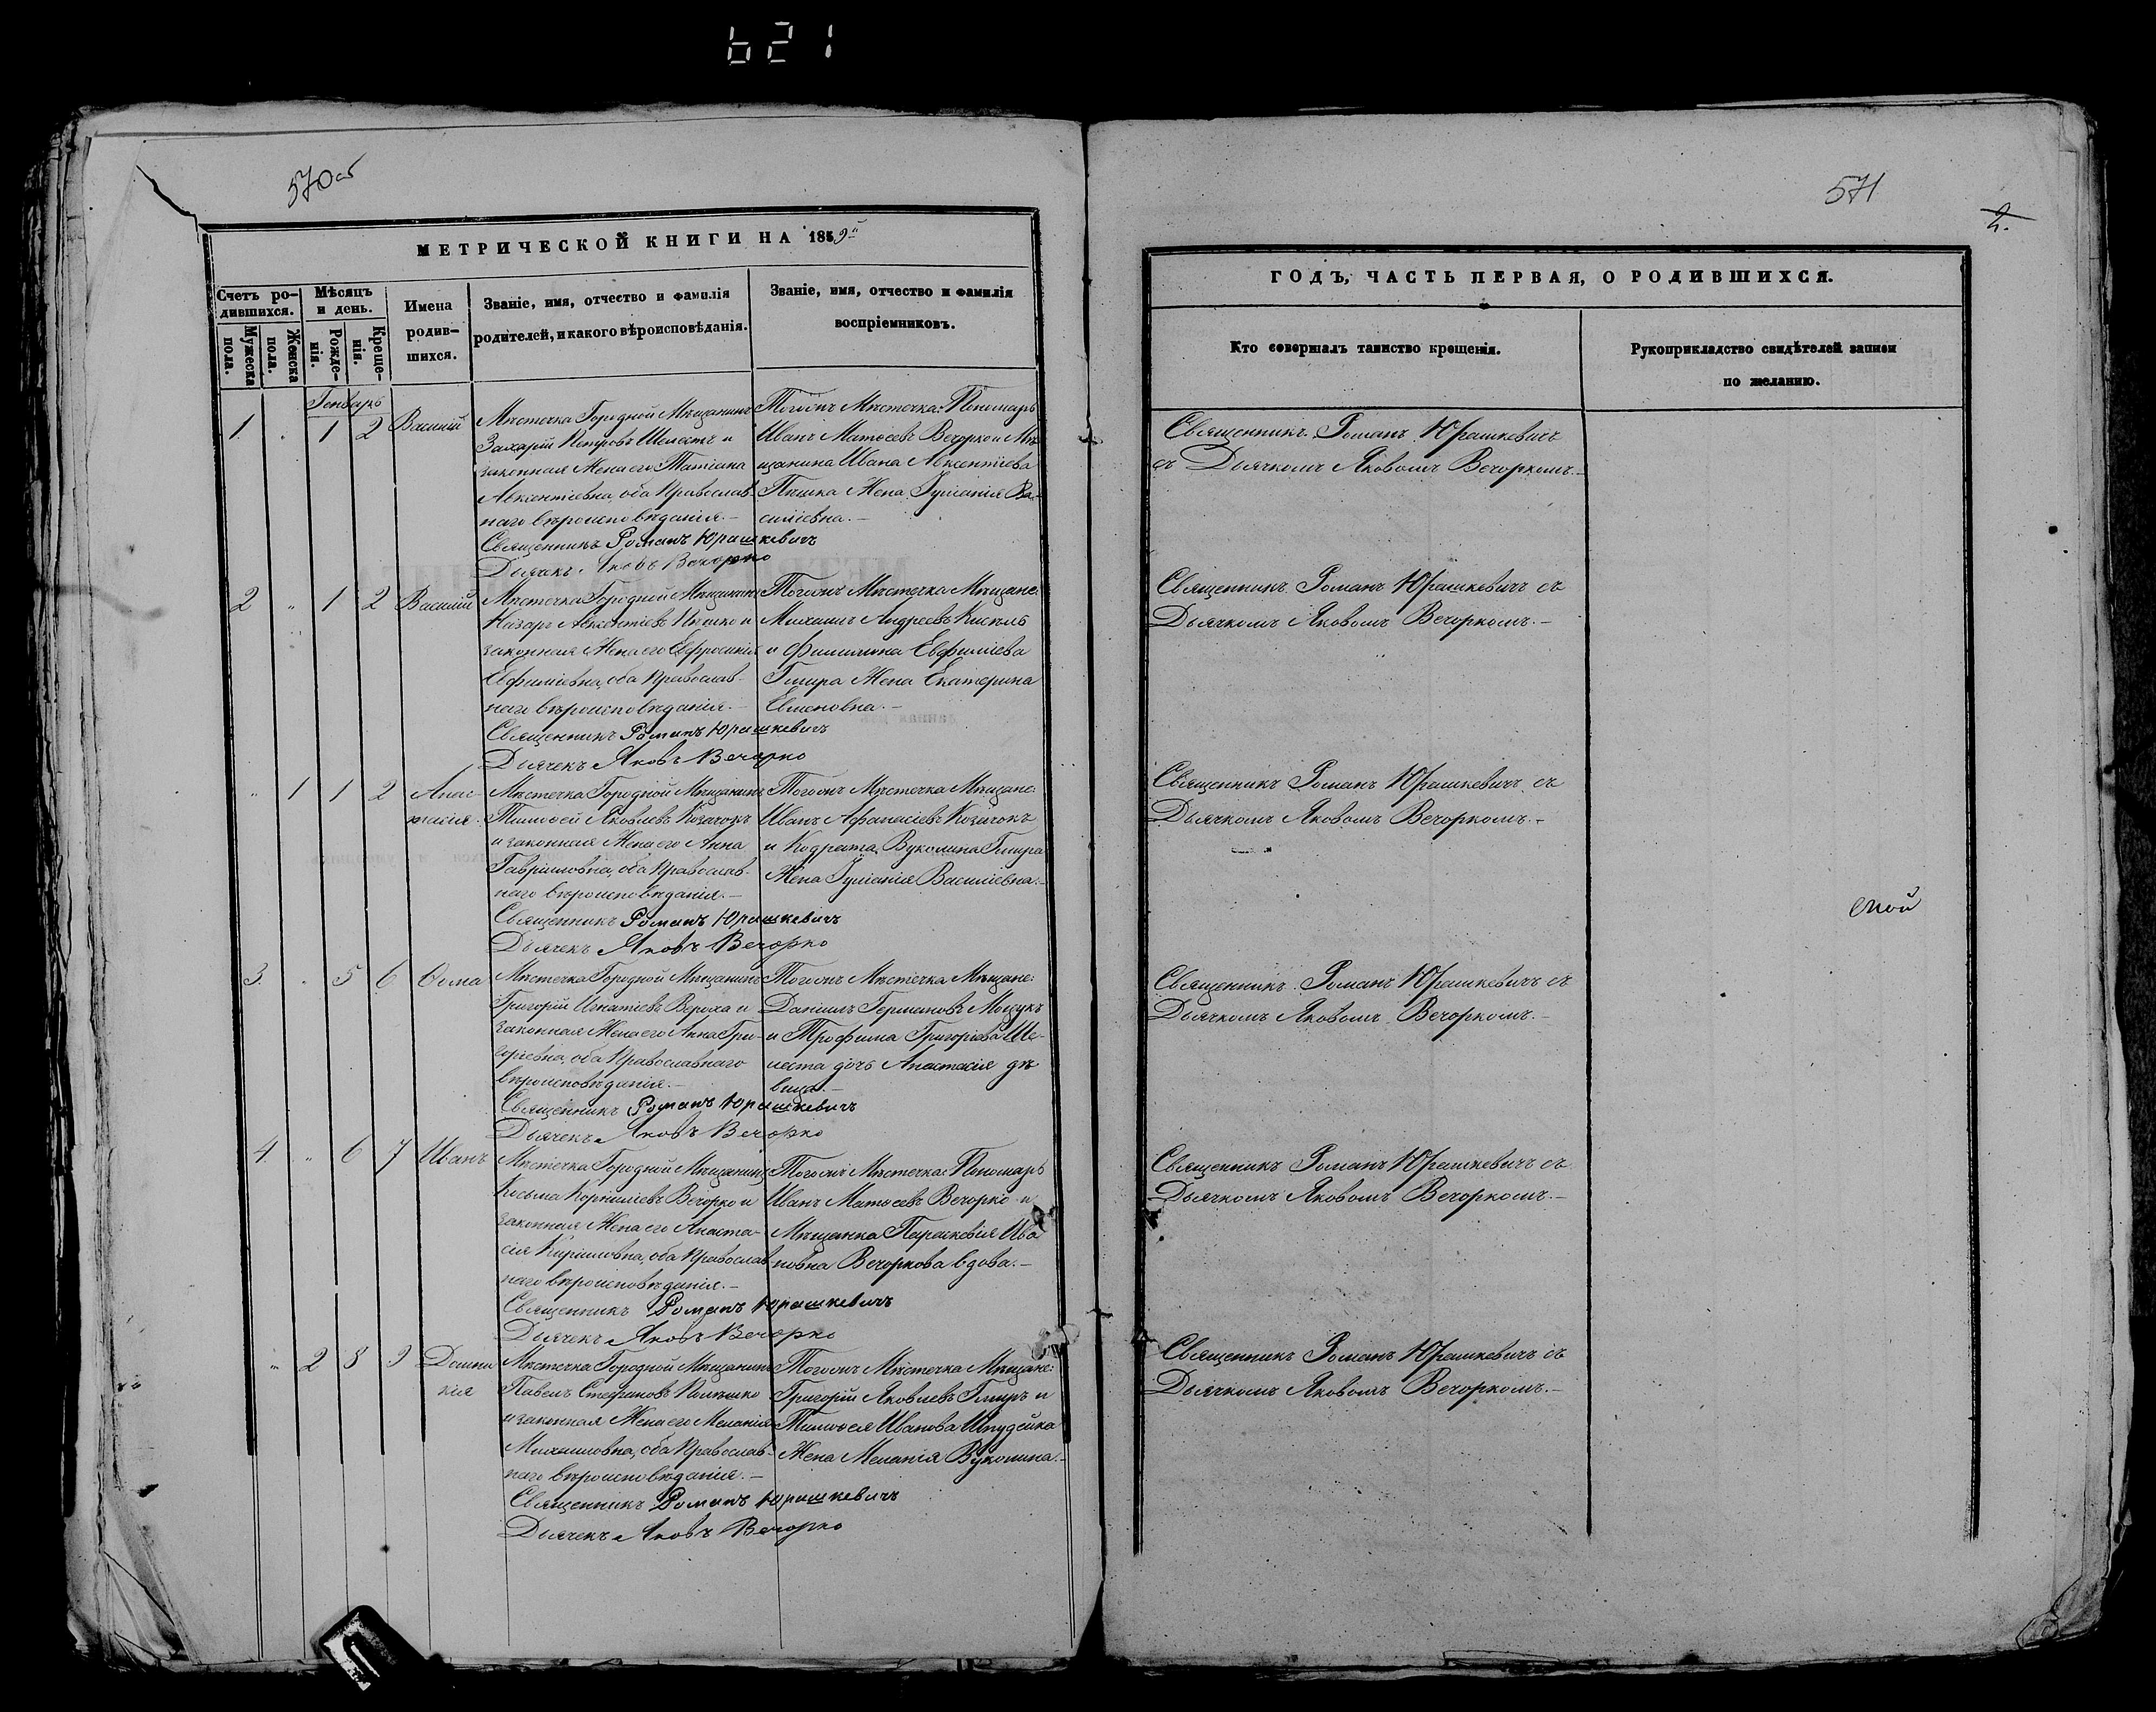 621
570об
МЕТРИЧЕСКОЙ КНИГИ НА 1859й
Счетъ ро-
дившихся.
Мѣсяцъ
и день.
Мужеска
пола.
Женска
пола.
Рожде-
нія.
Креще-
нія.
Имена
родив-
шихся.
Званіе, имя, отчество и фамилія
родителей, и какого вѣроисповѣданія.
Званіе, имя, отчество и фамилія
воспріемниковъ.
Генварь
1. 1 2 Василій
Мѣстечка Городной Мѣщанинъ
Захарій Петровъ Шеместъ и
законная Жена его Татіана
Авксентіевна, оба Православ-
наго вѣроисповѣданія.-
Священникъ Романъ Юрашкевичъ
Дьячекъ Яковъ Вечорко
Тогожъ Мѣстечка: Пономарь
Иванъ Матѳеевъ Вечорко и Мѣ-
щанина Ивана Авксентіева
Пѣшка Жена Іуліанія Ва-
силіевна.-
2 " 1 2 Василій
Мѣстечка Городной Мѣщанинъ
Назаръ Авксентіевъ Пѣшко и
законная Жена его Евфросинія
Евфиміевна, оба Православ-
наго вѣроисповѣданія.-
Священникъ Романъ Юрашкевичъ
Дьячекъ Яковъ Вечорко
Тогожъ Мѣстечка Мѣщане:
Михаилъ Андреевъ Кисель
и Филимона Евфиміева
Гмира Жена Екатерина
" 1 1 2 Анас-
тасія
Мѣстечка Городной Мѣщанинъ
Тимоѳей Яковлевъ Козачокъ
и законная Жена его Анна
Гавріиловна, оба Православ-
наго вѣроисповѣданія.-
Священникъ Романъ Юрашкевичъ
Дьячекъ Яковъ Вечорко
Тогожъ Мѣстечка Мѣщане:
Иванъ Афанасіевъ Козачокъ
и Кодрата Вуколина Гмира
Жена Іуліанія Василіевна.-
3. " 5 6 Ѳома
Мѣстечка Городной Мѣщанинъ
Григорій Игнатіевъ Вероха и
законная Жена его Анна Гри-
горіевна, оба Православнаго
вѣроисповѣданія.-
Священникъ Романъ Юрашкевичъ
Дьячекъ Яковъ Вечорко
Тогожъ Мѣстечка Мѣщане:
Даніилъ Германовъ Мощукъ
и Трофима Григоріева Ше-
места дочь Анастасія дѣ-
вица.-
4. " 6 7 Иванъ
Мѣстечка Городной Мѣщанинъ
Косьма Корниліевъ Вечорко и
законная Жена его Анаста-
сія Кирилловна, оба Православ-
наго вѣроисповѣданія.-
Священникъ Романъ Юрашкевичъ
Дьячекъ Яковъ Вечорко
Тогожъ Мѣстечка: Пономарь
Иванъ Матѳеевъ Вечорко и
Мѣщанка Параскевія Ива-
новна Вечоркова вдова.-
" 2 8 9 Домни-
кія
Мѣстечка Городной Мѣщанинъ
Павелъ Стефановъ Полешко
и законная Жена его Меланія
Михаиловна, оба Православ-
наго вѣроисповѣданія.-
Священникъ Романъ Юрашкевичъ
Дьячекъ Яковъ Вечорко
Тогожъ Мѣстечка Мѣщане:
Григорій Яковлевъ Гмиръ и
Тимоѳея Иванова Шпудейка
Жена Меланія Вуколина.-
571
2.
ГОДЪ, ЧАСТЬ ПЕРВАЯ, О РОДИВШИХСЯ.
Кто совершалъ таинство крещенія.
Рукоприкладство свидѣтелей записи
по желанію.
Священникъ Романъ Юрашкевичъ
съ Дьячкомъ Яковомъ Вечоркомъ.-
Священникъ Романъ Юрашкевичъ съ
Дьячкомъ Яковомъ Вечоркомъ.-
Священникъ Романъ Юрашкевичъ съ
Дьячкомъ Яковомъ Вечоркомъ.-
ской
Священникъ Романъ Юрашкевичъ съ
Дьячкомъ Яковомъ Вечоркомъ.-
Священникъ Романъ Юрашкевичъ съ
Дьячкомъ Яковомъ Вечоркомъ.-
Священникъ Романъ Юрашкевичъ съ
Дьячкомъ Яковомъ Вечоркомъ.-